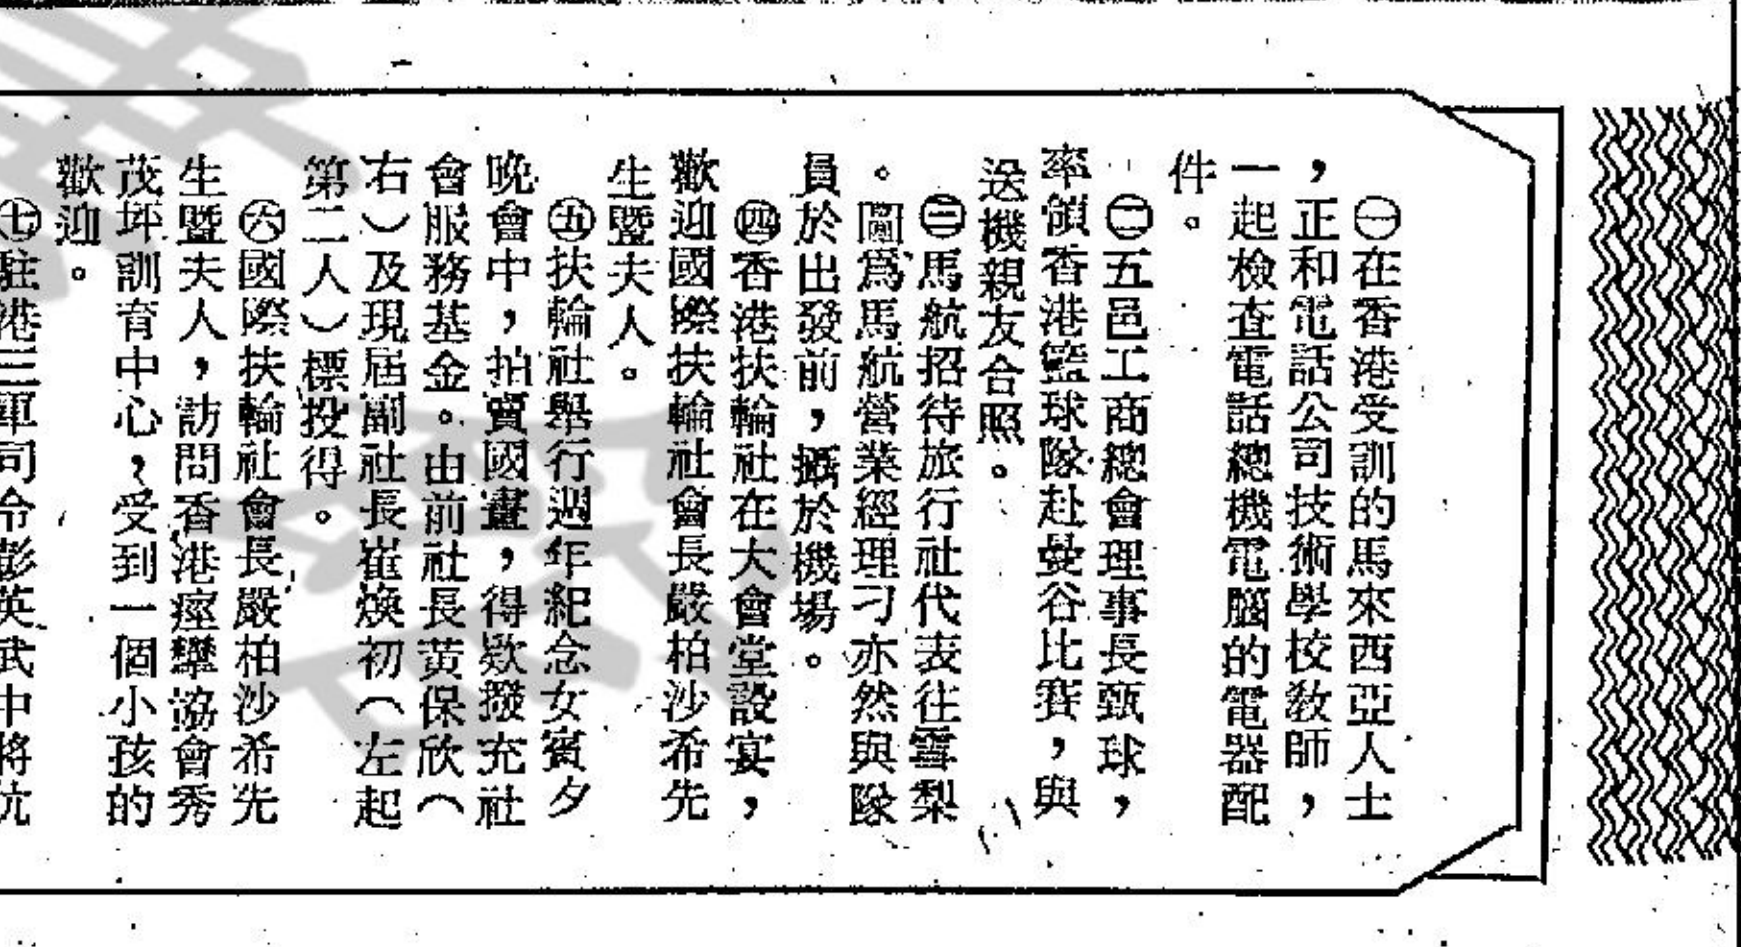 ㊀在香港受訓的馬來西亞人士
，正和電話公司技術學校敎師，
一起檢查電話總機電腦的電器配
件。
㊁五邑工商總會理事長甄球，
率領香港籃球隊赴曼谷比賽，與
送機親友合照。
㊂馬航招待旅行社代表往雪梨
。圖爲馬航營業經理刁亦然與隊
員於出發前，攝於機場。
㊃香港扶輪社在大會堂設宴，
歡迎國際扶輪社會長嚴柏沙希先
生暨夫人。
㊄扶輪社舉行週年紀念女賓夕
晚會中，拍賣國畫，得欵撥充社
會服務基金。由前社長黃保欣（
右）及現屆副社長崔煥初（左起
第二人）標投得。
㊅國際扶輪社會長嚴柏沙希先
生暨夫人，訪問香港痙攣協會秀
茂坪訓育中心，受到一個小孩的
歡迎。
㊆駐港三軍司令彭英武中將伉